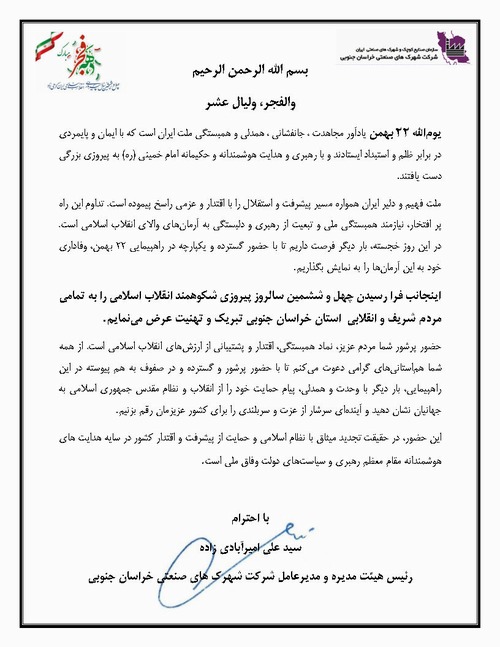 سازمان صنایع کوچک و شهرک های صنعتی ایران
شرکت شهرک های صنعتی خراسان جنوبی
دهه فجر
مبارک
بسم الله الرحمن الرحیم
والفجر، ولیال عشر
یوم‌الله ۲۲ بهمن یادآور مجاهدت ، جانفشانی ، همدلی و همبستگی ملت ایران است که با ایمان و پایمردی
در برابر ظلم و استبداد ایستادند و با رهبری و هدایت هوشمندانه و حکیمانه امام خمینی (ره) به پیروزی بزرگی
دست یافتند.
ملت فهیم و دلیر ایران همواره مسیر پیشرفت و استقلال را با اقتدار و عزمی راسخ پیموده است. تداوم این راه
پر افتخار، نیازمند همبستگی ملی و تبعیت از رهبری و دلبستگی به آرمان‌های والای انقلاب اسلامی است.
در این روز خجسته، بار دیگر فرصت داریم تا با حضور گسترده و یکپارچه در راهپیمایی ۲۲ بهمن، وفاداری
خود به این آرمان‌ها را به نمایش بگذاریم.
اینجانب فرا رسیدن چهل و ششمین سالروز پیروزی شکوهمند انقلاب اسلامی را به تمامی
مردم شریف و انقلابی استان خراسان جنوبی تبریک و تهنیت عرض می‌نمایم.
حضور پرشور شما مردم عزیز، نماد همبستگی، اقتدار و پشتیبانی از ارزش‌های انقلاب اسلامی است. از همه
شما هم‌استانی‌های گرامی دعوت می‌کنم تا با حضور پرشور و گسترده و در صفوف به هم پیوسته در این
راهپیمایی، بار دیگر با وحدت و همدلی، پیام حمایت خود را از انقلاب و نظام مقدس جمهوری اسلامی به
جهانیان نشان دهید و آینده‌ای سرشار از عزت و سربلندی را برای کشور عزیزمان رقم بزنیم.
این حضور، در حقیقت تجدید میثاق با نظام اسلامی و حمایت از پیشرفت و اقتدار کشور در سایه هدایت های
هوشمندانه مقام معظم رهبری و سیاست‌های دولت وفاق ملی است.
با احترام
سید علی امیرآبادی زاده
رئیس هیئت مدیره و مدیرعامل شرکت شهرک های صنعتی خراسان جنوبی